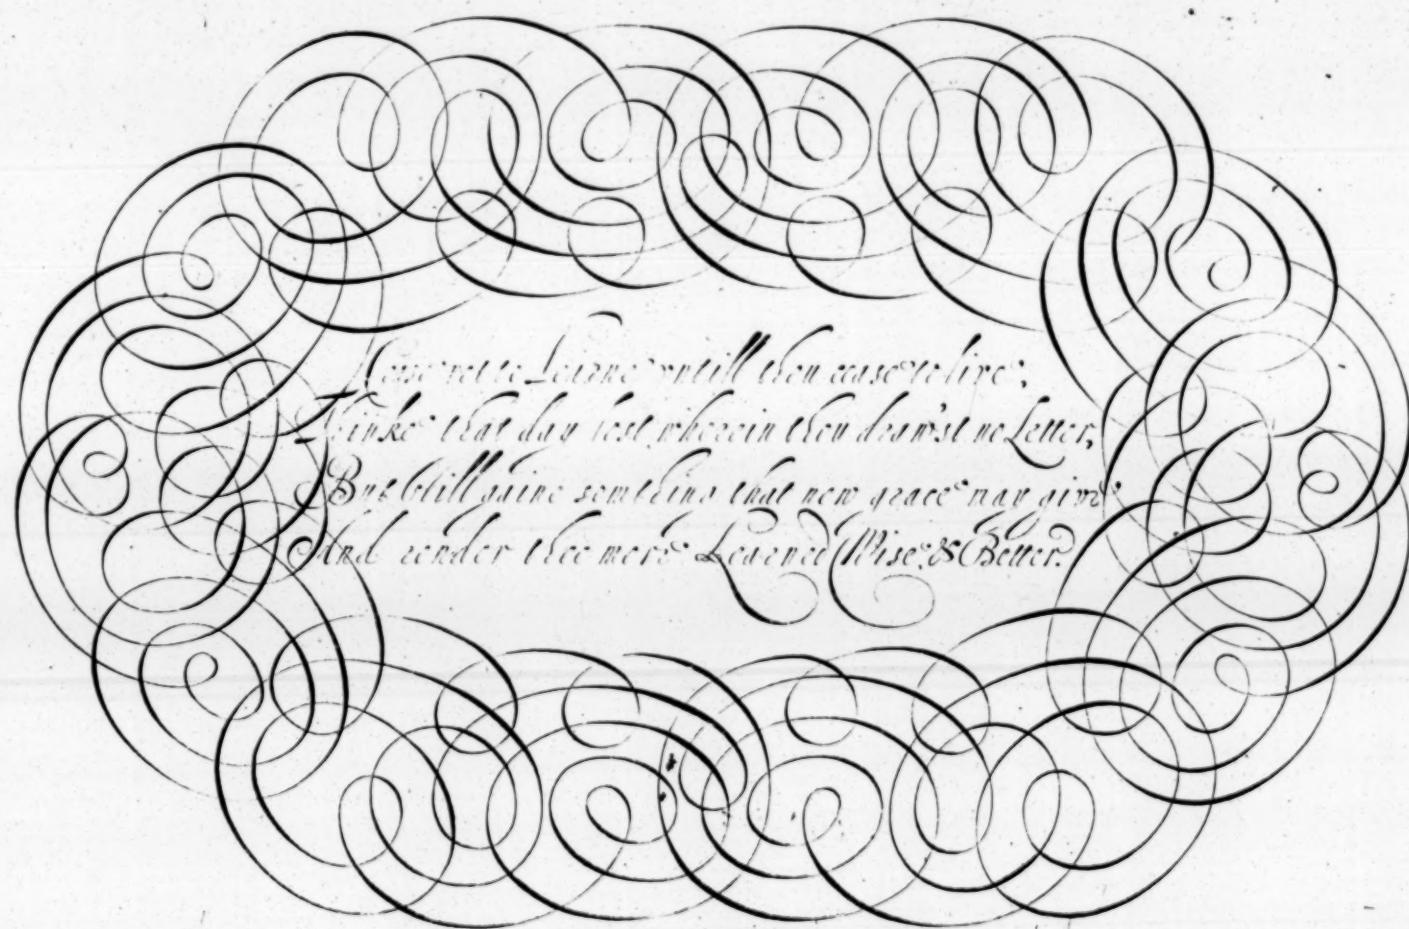 Cease not to Learne untill thou cease to live,
Thinke that day lost wherein thou draw'st no Letter,
But still gaine somthing that new grace may give
And render thee more Learned Wise & Better.